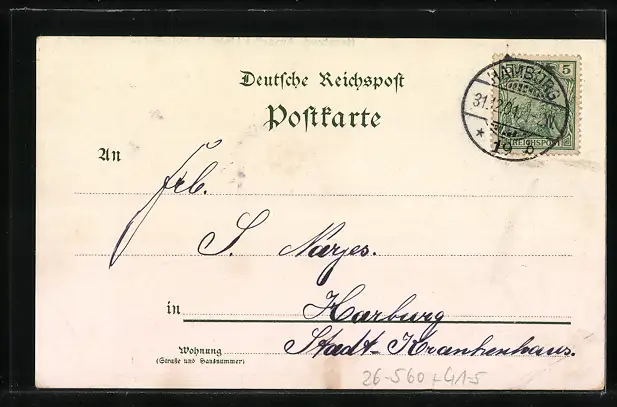 Deutsche Reichspost
Postkarte
HAMBURG
31.12.01
* 19 b
5
REICHSPOST
An
Frl.
S. Narjes.
in Harburg
Wohnung Stadt-Krankenhaus.
(Straße und Hausnummer)
26-560+41-5